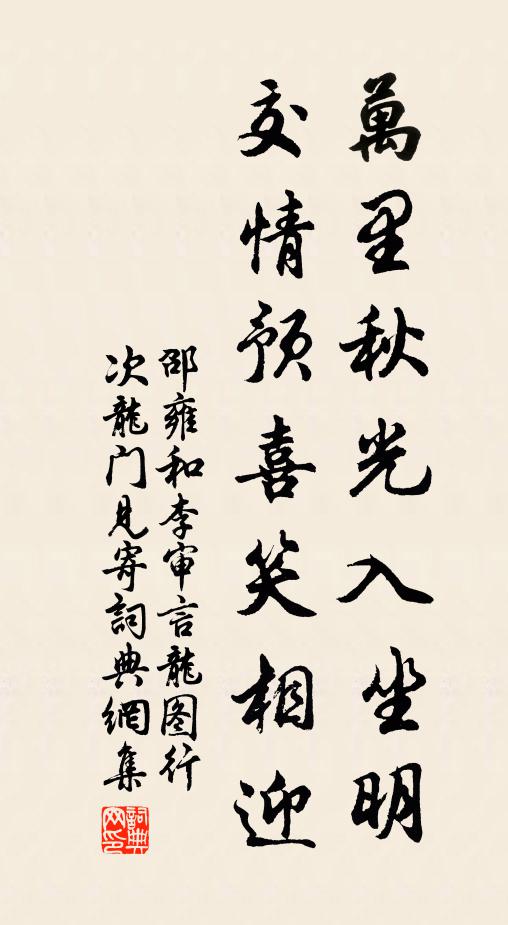 萬里秋光入坐明
交情預喜笑相迎
邵雍和李审言龍图行
次龍门見寄詞典網集
詞典网印